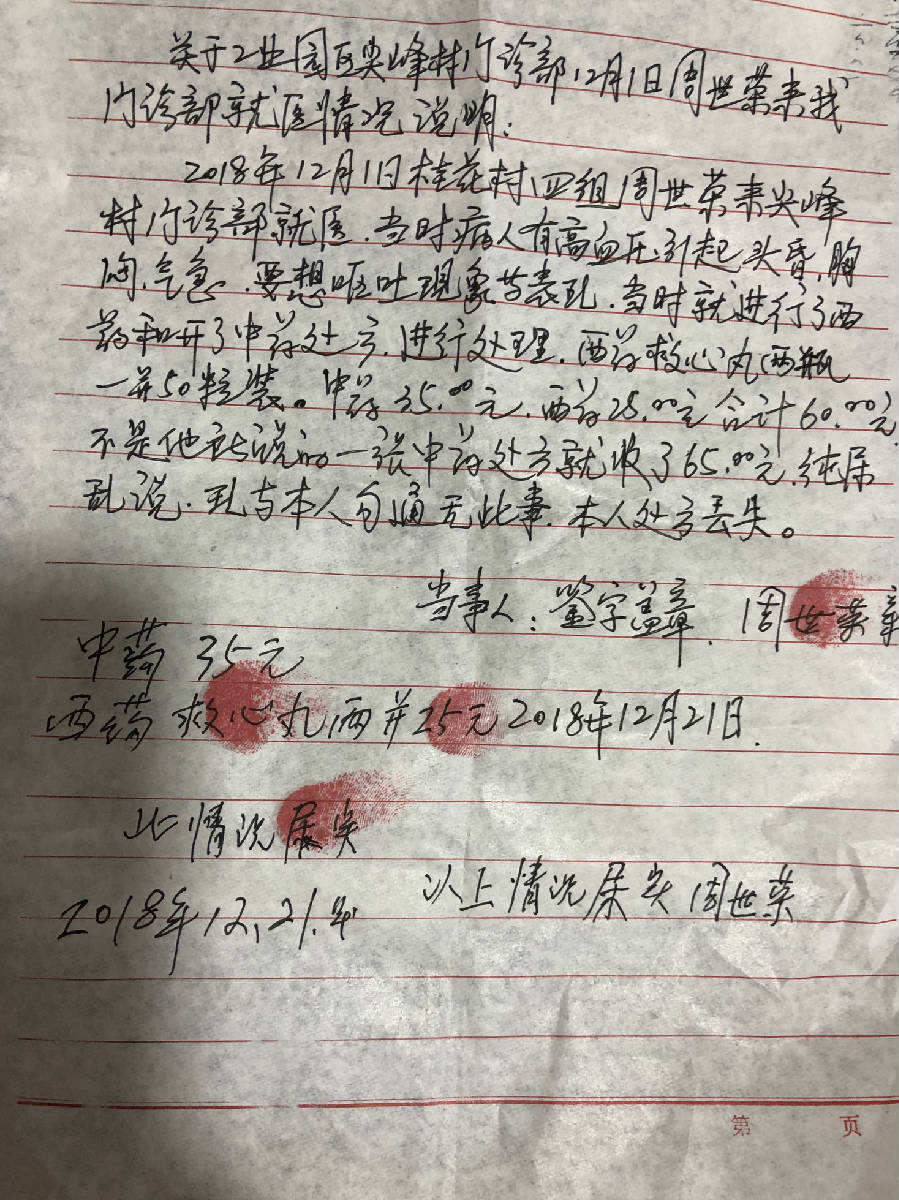 关于工业园区尖峰村门诊部12月1日周世荣来我
门诊部就医情况说明:
2018年12月1日桂花村四组周世荣来尖峰
村门诊部就医.当时病人有高血压引起头昏,胸
闷,气急.要想呕吐现象与表现.当时就进行了西
药和开了中药处方.进行处理.西药救心丸两瓶
一并50粒装。中药35.00元.西药25.00元合计60.00元
不是他所说的一张中药处方就收了65.00元,纯属
乱说.现与本人勾通无此事.本人处方丢失。
当事人:鉴字盖章.周世荣章
中药 35元
西药 救心丸两并25元2018年12月21日.
此情况属实
以上情况属实周世荣
2018年12.21.
第 页